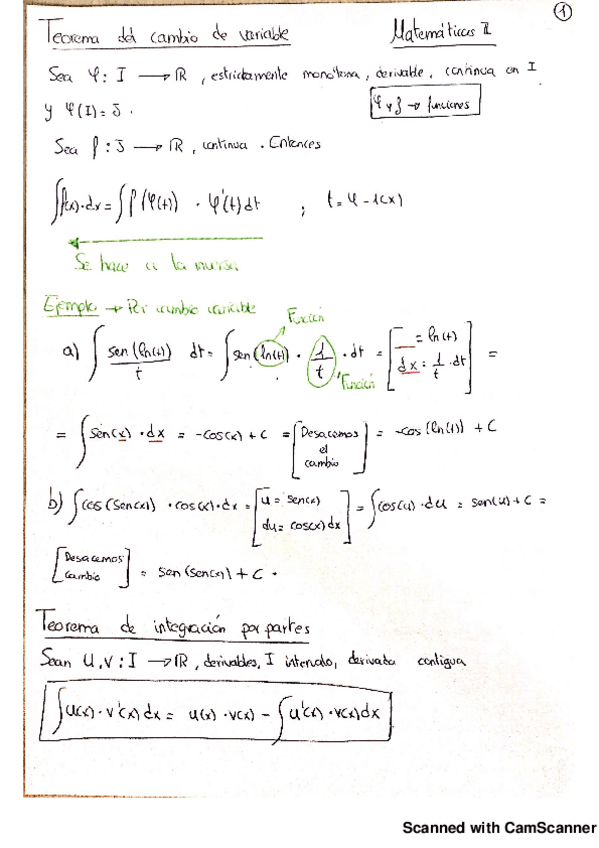 ①
Teorema del cambio de variable Matemáticas II
Sea φ: I → R, estrictamente monótona, derivable, continua en I
y φ(I) = J. φ y f → funciones
Sea f: J → R, continua. Entonces
∫f(x)·dx = ∫f(φ(t)) · φ'(t)dt ; t = φ-1(x)
Se hace a la inversa
Ejemplo → Por cambio variable
Función
a) ∫ sen(ln(t))/t dt = ∫sen(ln(t)) · 1/t · dt = [ _ = ln(t) dx = 1/t · dt ] =
Función
= ∫sen(x) · dx = -cos(x) + C = [Desacemos el cambio] = -cos(ln(t)) + C
b) ∫cos(sen(x)) · cos(x)·dx = [u = sen(x) du = cos(x)dx] = ∫cos(u)·du = sen(u) + C =
[Desacemos cambio] = sen(sen(x)) + C.
Teorema de integración por partes
Sean U, V: I → R, derivables, I intervalo, derivada contigua
∫u(x)·v'(x)dx = u(x)·v(x) - ∫u'(x)·v(x)dx
Scanned with CamScanner